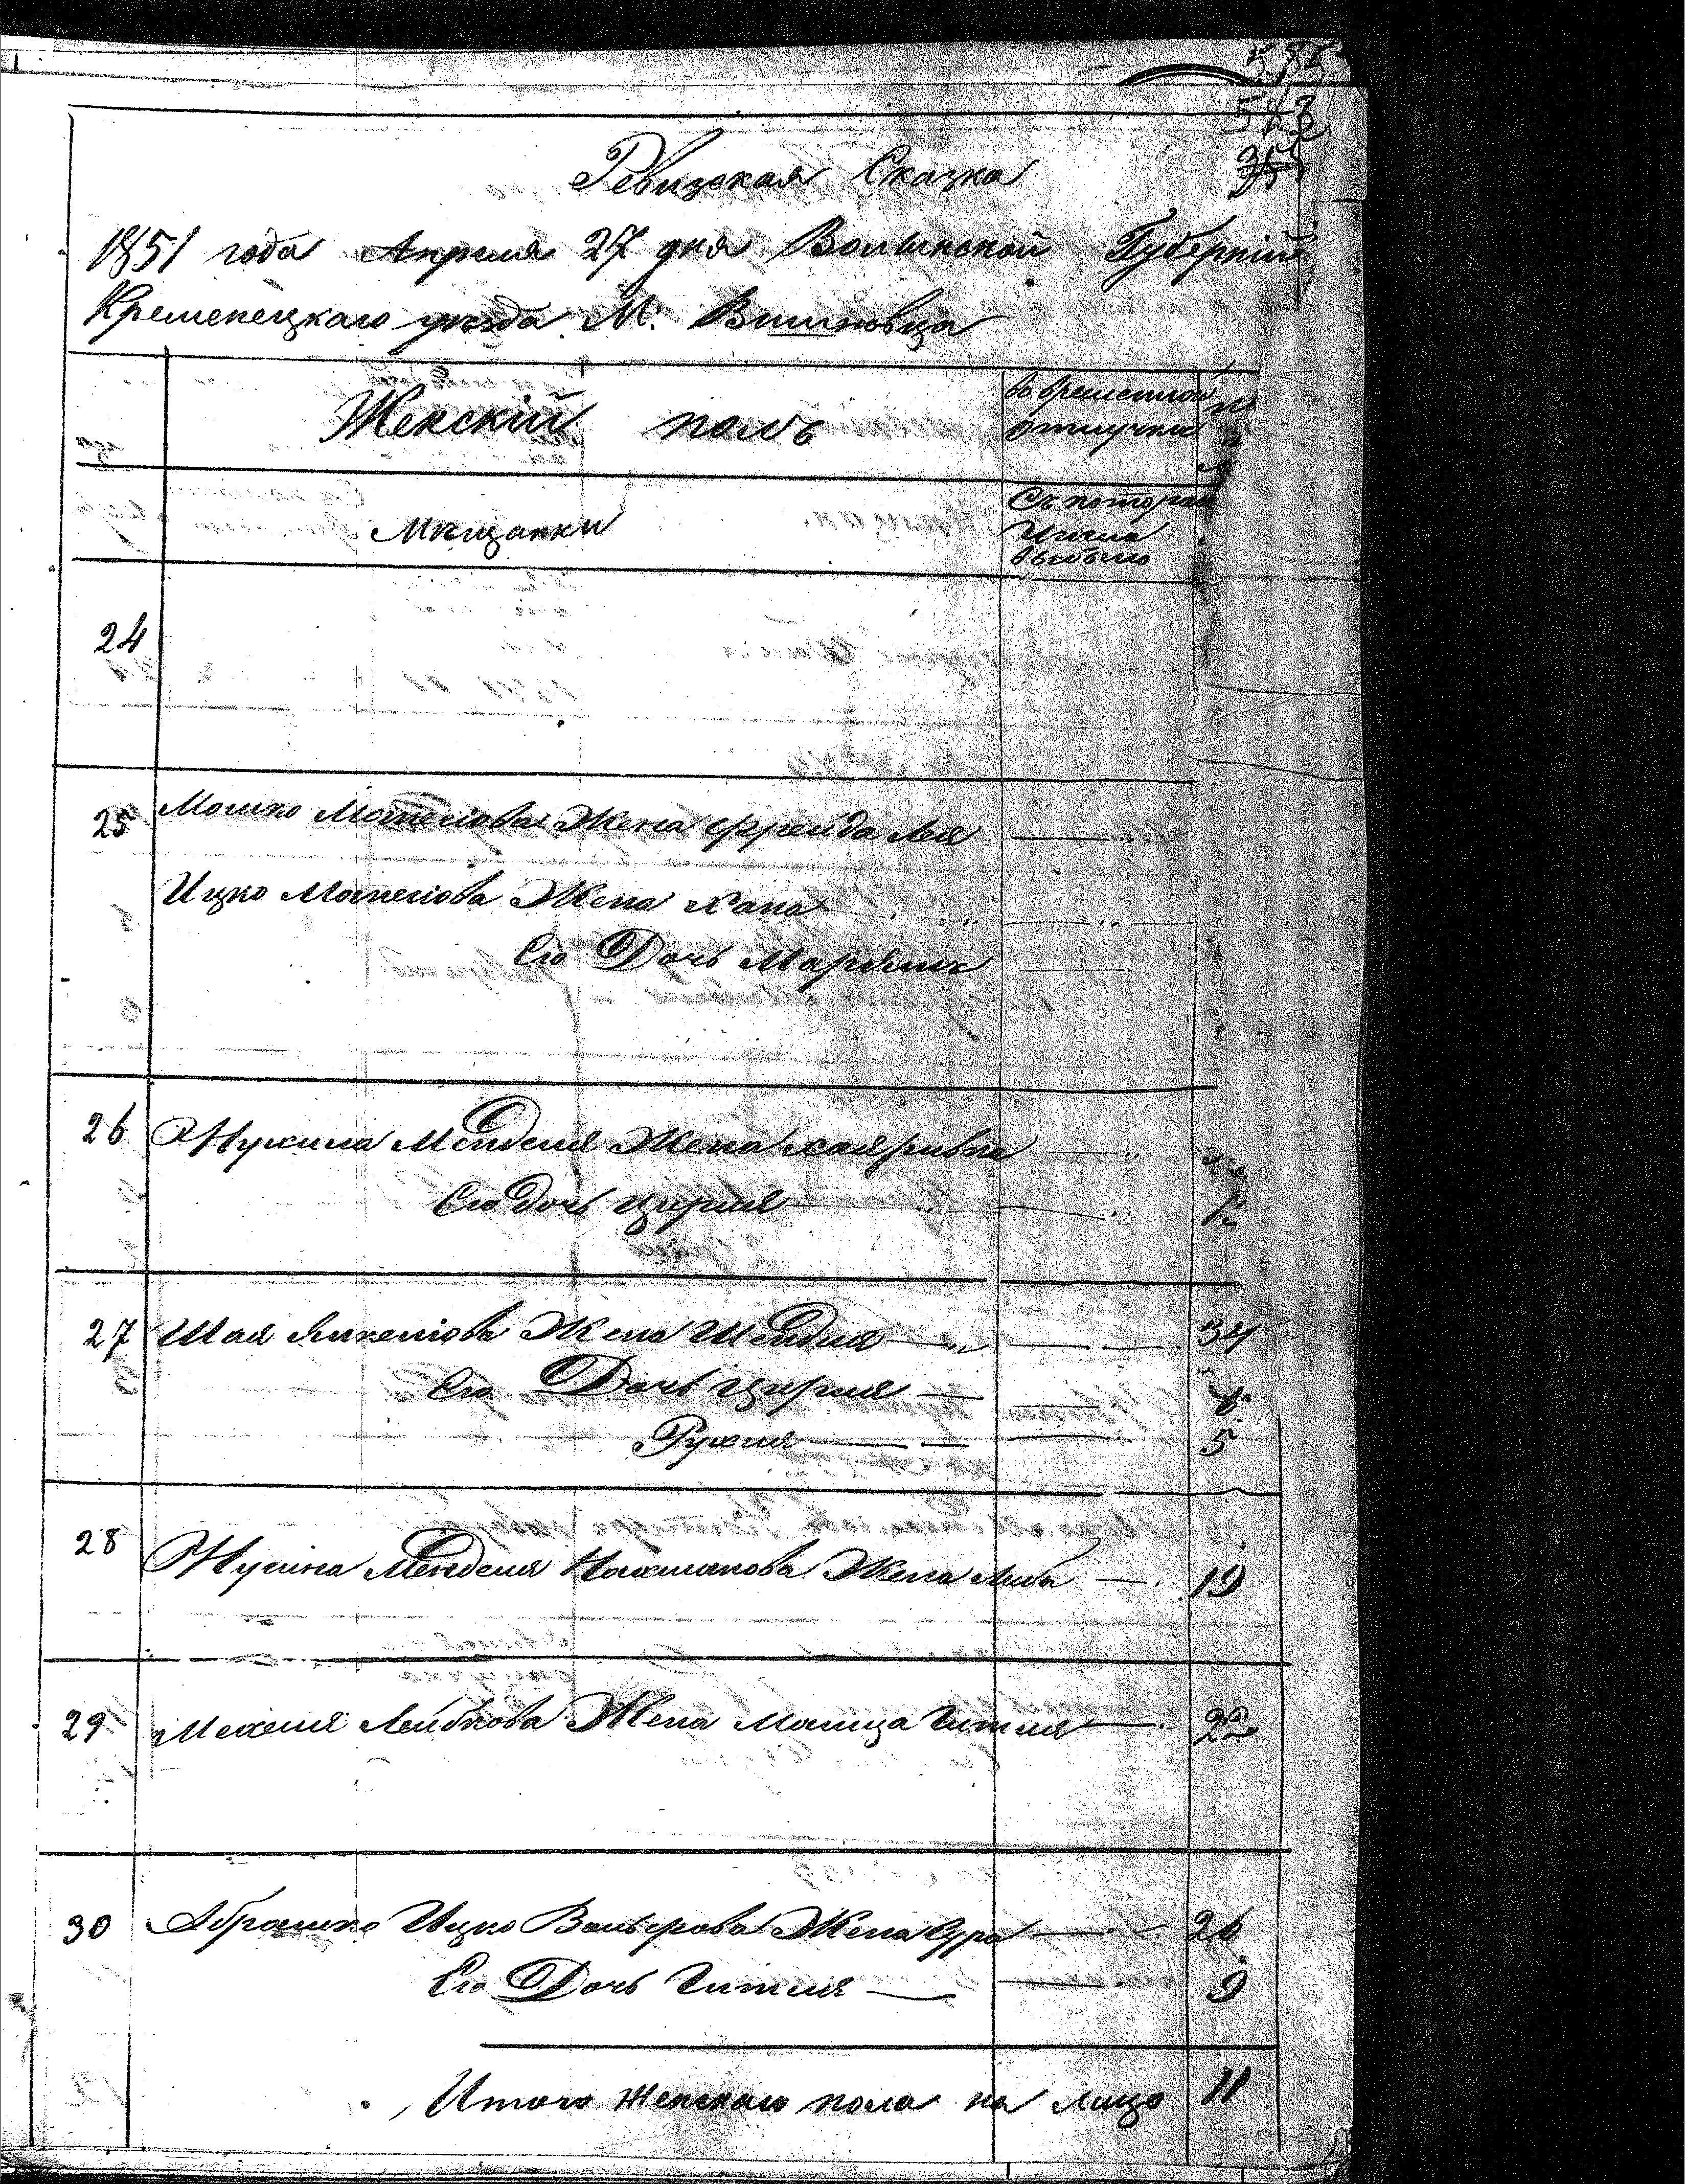 585
523
35
Ревизская Сказка
1851 года Апреля 27 дня Волынской Губерніи
Кременецкаго уезда М. Вишновца
Женскій полъ
во временной отлучки
Мѣщанки
Съ котораго
Числа
выбыло
24
25 Мошко Мотелова Жена Фрейда Лея
Ицко Мотелова Жена Хана
Его Дочь Марьямъ
26 Нухима Менделя Жена Хая ривка
Его Дочь Цирля
27 Шая Янкелюва Жена Шендля 34
Его Дочь Цирля 8
Рухля 5
28 Нухима Менделя Нахманова Жена Либа 19
29 Мехеля Лейбкова Жена Малица Гитля 22
30 Абрамко Ицко Вольфова Жена Сура 26
Его Дочь Гитля 9
Итого Женскаго пола на лицо 11